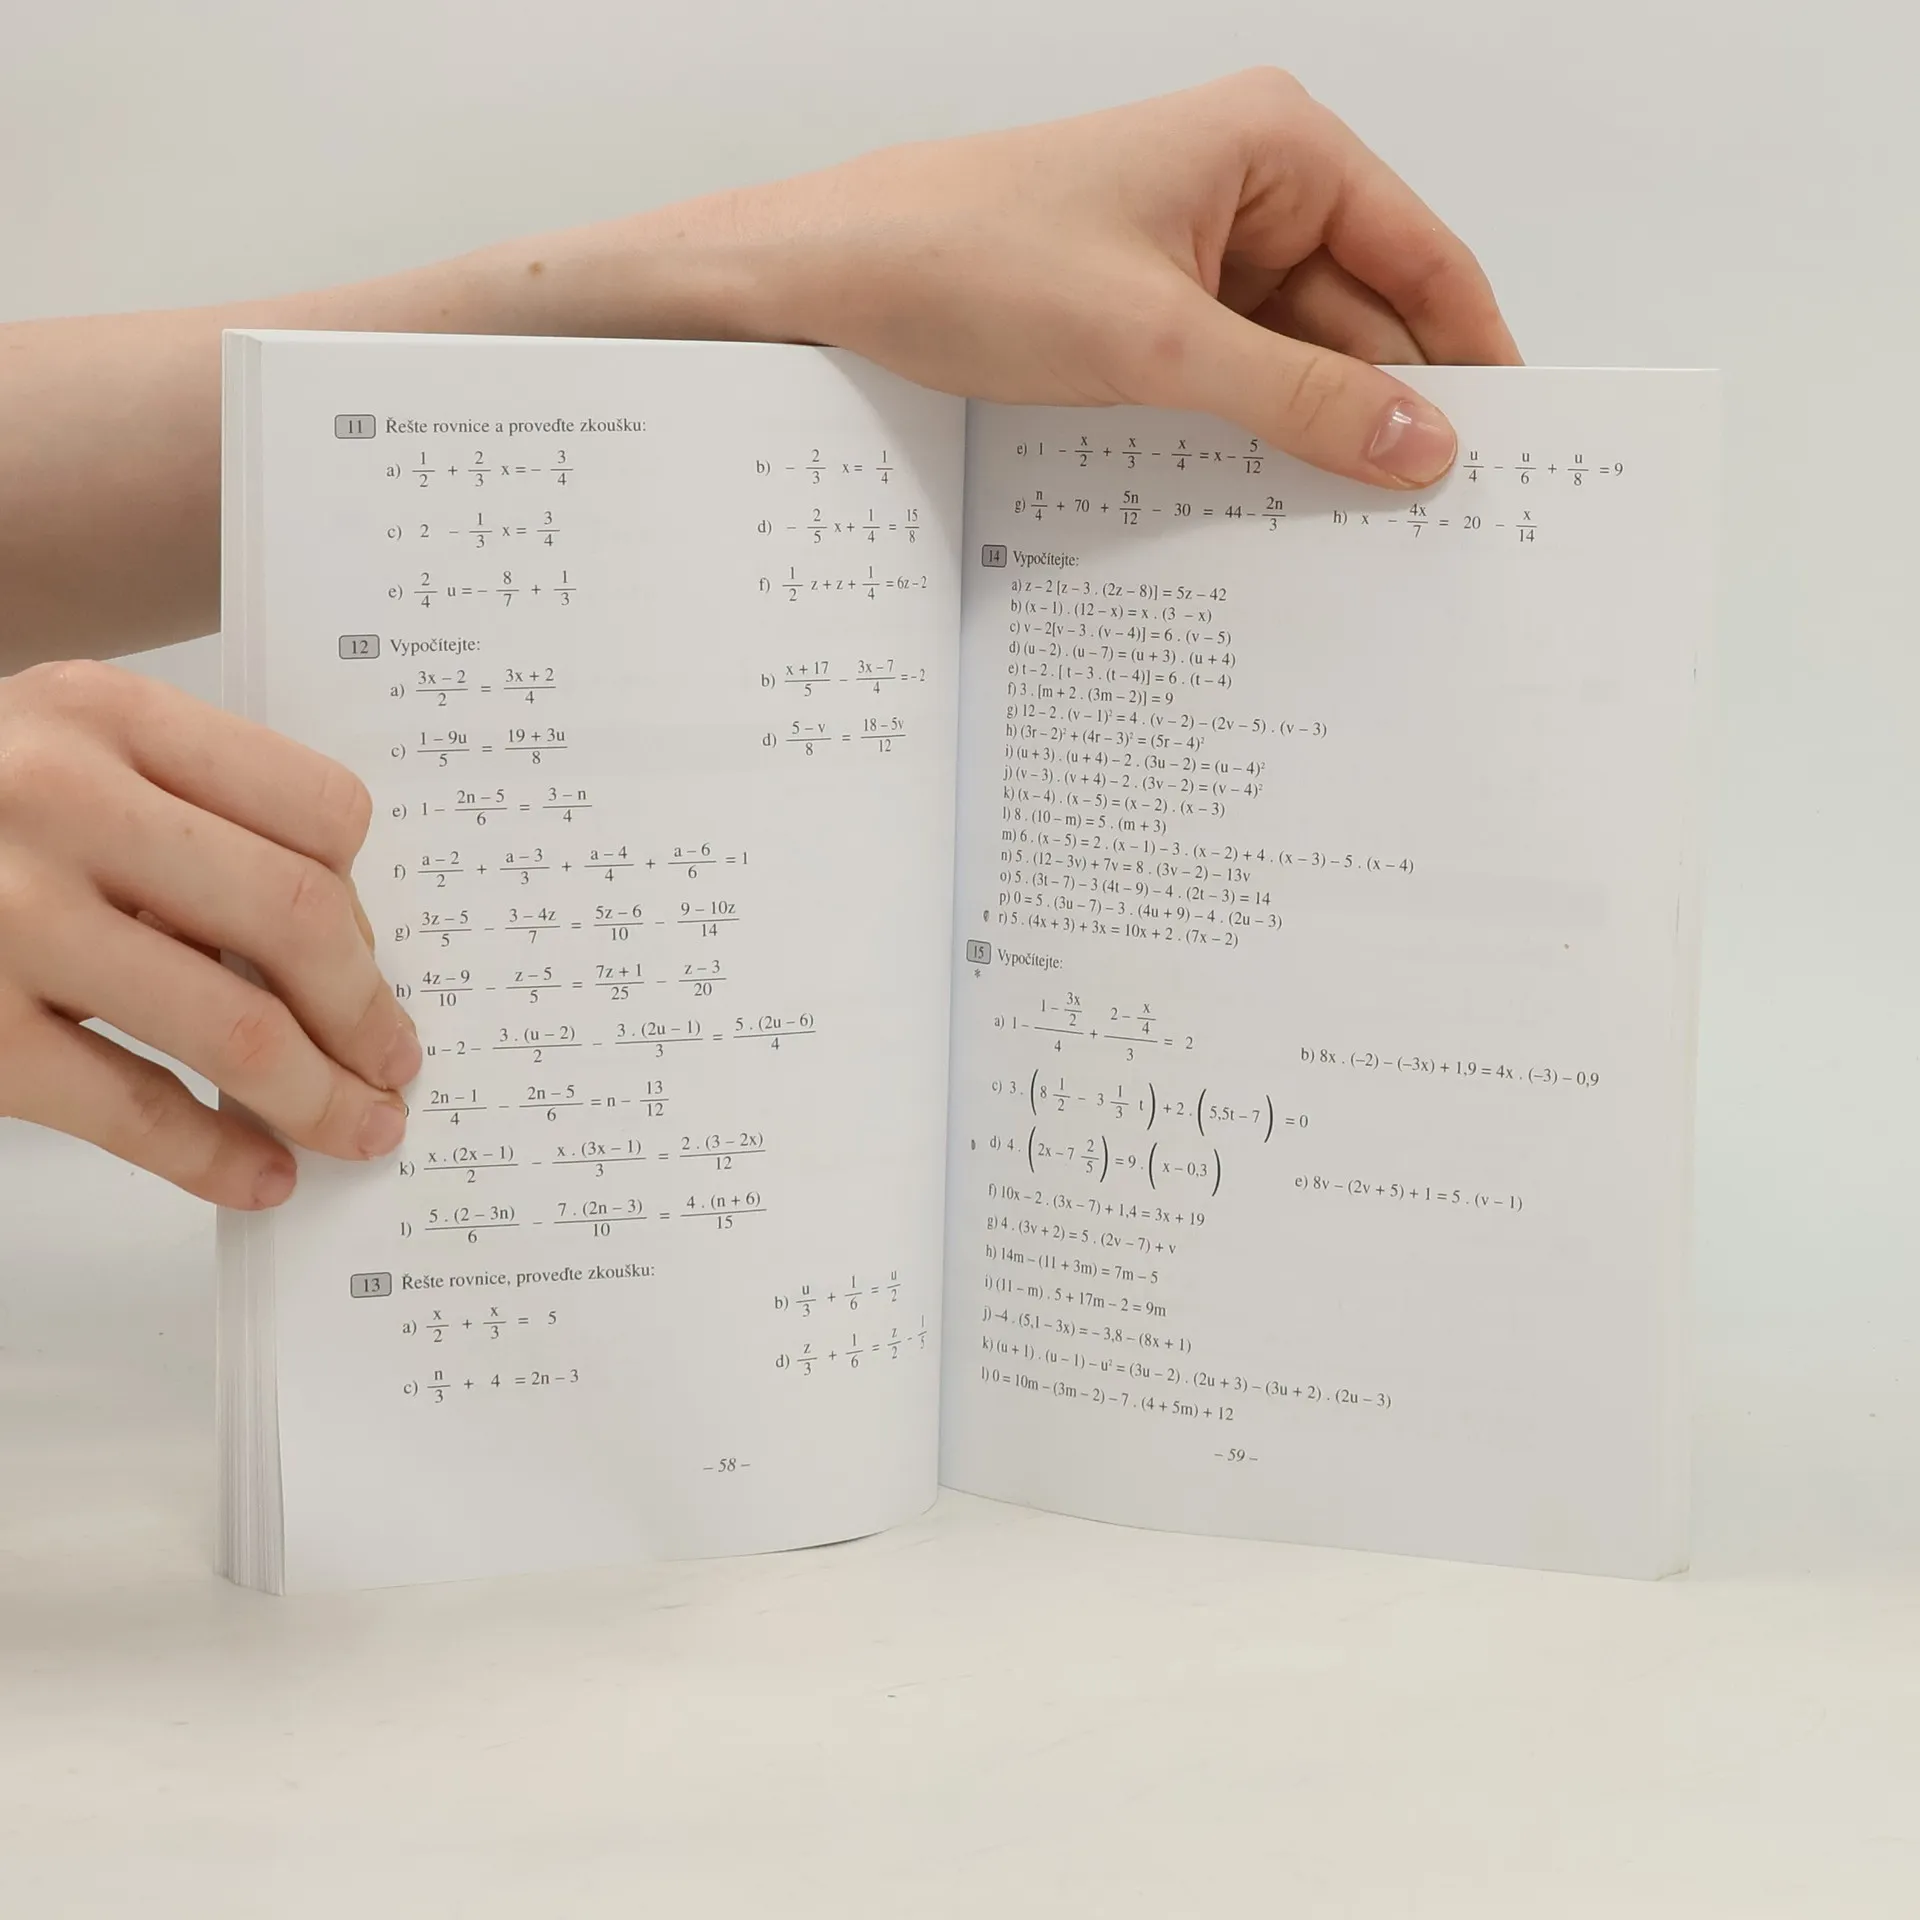 11 Řešte rovnice a proveďte zkoušku:
a) 1/2 + 2/3 x = – 3/4
b) – 2/3 x = 1/4
c) 2 – 1/3 x = 3/4
d) – 2/5 x + 1/4 = 15/8
e) 2/4 u = – 8/7 + 1/3
f) 1/2 z + z + 1/4 = 6z – 2
12 Vypočítejte:
a) 3x – 2/2 = 3x + 2/4
b) x + 17/5 – 3x – 7/4 = – 2
c) 1 – 9u/5 = 19 + 3u/8
d) 5 – v/8 = 18 – 5v/12
e) 1 – 2n – 5/6 = 3 – n/4
f) a – 2/2 + a – 3/3 + a – 4/4 + a – 6/6 = 1
g) 3z – 5/5 – 3 – 4z/7 = 5z – 6/10 – 9 – 10z/14
h) 4z – 9/10 – z – 5/5 = 7z + 1/25 – z – 3/20
u – 2 – 3 . (u – 2)/2 – 3 . (2u – 1)/3 = 5 . (2u – 6)/4
) 2n – 1/4 – 2n – 5/6 = n – 13/12
k) x . (2x – 1)/2 – x . (3x – 1)/3 = 2 . (3 – 2x)/12
l) 5 . (2 – 3n)/6 – 7 . (2n – 3)/10 = 4 . (n + 6)/15
13 Řešte rovnice, proveďte zkoušku:
a) x/2 + x/3 = 5
b) u/3 + 1/6 = u/2
c) n/3 + 4 = 2n – 3
d) z/3 + 1/6 = z/2 – 1/5
– 58 –
e) 1 – x/2 + x/3 – x/4 = x – 5/12
u/4 – u/6 + u/8 = 9
g) n/4 + 70 + 5n/12 – 30 = 44 – 2n/3
h) x – 4x/7 = 20 – x/14
14 Vypočítejte:
a) z – 2 [z – 3 . (2z – 8)] = 5z – 42
b) (x – 1) . (12 – x) = x . (3 – x)
c) v – 2[v – 3 . (v – 4)] = 6 . (v – 5)
d) (u – 2) . (u – 7) = (u + 3) . (u + 4)
e) t – 2 . [ t – 3 . (t – 4)] = 6 . (t – 4)
f) 3 . [m + 2 . (3m – 2)] = 9
g) 12 – 2 . (v – 1)² = 4 . (v – 2) – (2v – 5) . (v – 3)
h) (3r – 2)² + (4r – 3)² = (5r – 4)²
i) (u + 3) . (u + 4) – 2 . (3u – 2) = (u – 4)²
j) (v – 3) . (v + 4) – 2 . (3v – 2) = (v – 4)²
k) (x – 4) . (x – 5) = (x – 2) . (x – 3)
l) 8 . (10 – m) = 5 . (m + 3)
m) 6 . (x – 5) = 2 . (x – 1) – 3 . (x – 2) + 4 . (x – 3) – 5 . (x – 4)
n) 5 . (12 – 3v) + 7v = 8 . (3v – 2) – 13v
o) 5 . (3t – 7) – 3 (4t – 9) – 4 . (2t – 3) = 14
p) 0 = 5 . (3u – 7) – 3 . (4u + 9) – 4 . (2u – 3)
r) 5 . (4x + 3) + 3x = 10x + 2 . (7x – 2)
15 Vypočítejte:
*
a) 1 – (1 – 3x/2)/4 + (2 – x/4)/3 = 2
b) 8x . (–2) – (–3x) + 1,9 = 4x . (–3) – 0,9
c) 3 . (8 1/2 – 3 1/3 t) + 2 . (5,5t – 7) = 0
d) 4 . (2x – 7 2/5) = 9 . (x – 0,3)
e) 8v – (2v + 5) + 1 = 5 . (v – 1)
f) 10x – 2 . (3x – 7) + 1,4 = 3x + 19
g) 4 . (3v + 2) = 5 . (2v – 7) + v
h) 14m – (11 + 3m) = 7m – 5
i) (11 – m) . 5 + 17m – 2 = 9m
j) –4 . (5,1 – 3x) = – 3,8 – (8x + 1)
k) (u + 1) . (u – 1) – u² = (3u – 2) . (2u + 3) – (3u + 2) . (2u – 3)
l) 0 = 10m – (3m – 2) – 7 . (4 + 5m) + 12
– 59 –